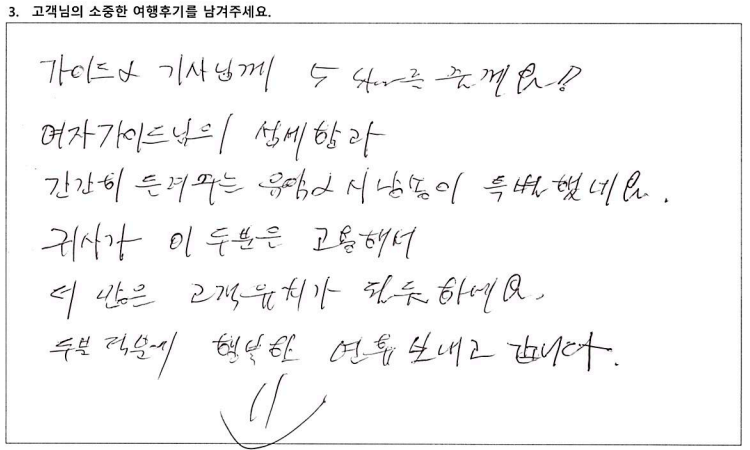 3. 고객님의 소중한 여행후기를 남겨주세요.
가이드& 기사님께
여자가이드님의 섬세함과
간간히 들려주는 음악& 시낭송이 특별했네요.
귀사가 이 두분은 고용해서
더 많은 고객유치가 될듯하네요.
두분 덕분에 행복한 연휴 보내고 갑니다.